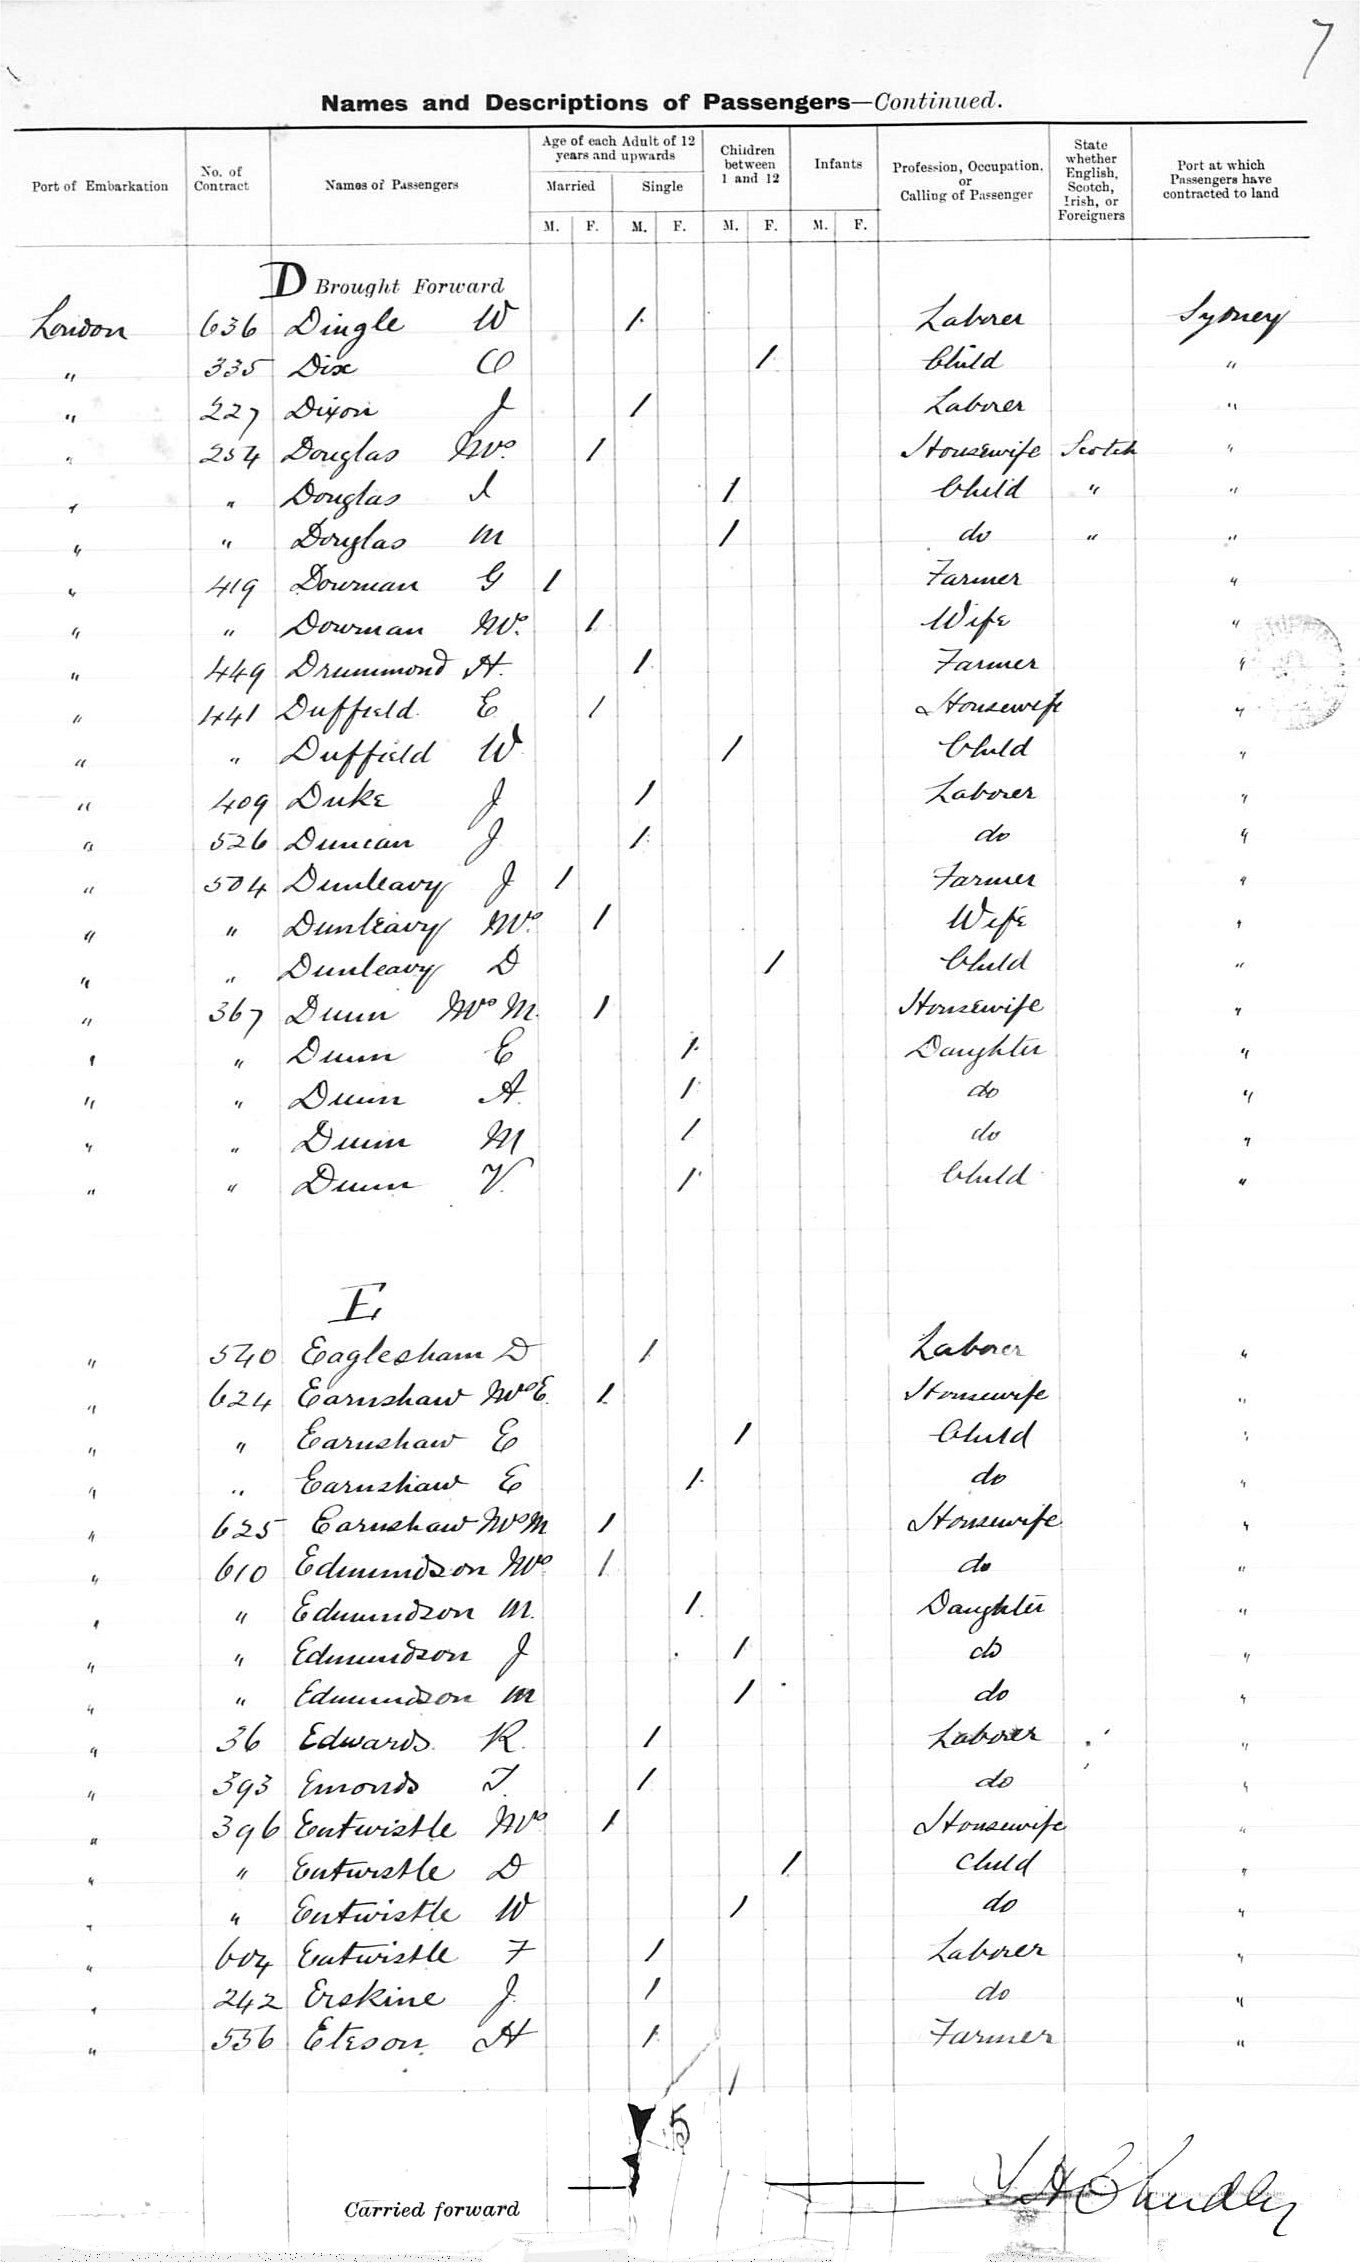 7
Names and Descriptions of Passengers—Continued.
Port of Embarkation
No. of Contract
Names of Passengers
Age of each Adult of 12 years and upwards
Married
Single
Children between 1 and 12
Infants
Profession, Occupation, or Calling of Passenger
State whether English, Scotch, Irish, or Foreigners
Port at which Passengers have contracted to land
M. F. M. F. M. F. M. F.
D Brought Forward
London 636 Dingle W 1 Laborer Sydney
" 335 Dix O 1 Child "
" 227 Dixon J 1 Laborer "
" 254 Douglas Mrs 1 Housewife Scotch "
" " Douglas I 1 Child " "
" " Douglas M 1 do " "
" 419 Dowman G 1 Farmer "
" " Dowman Mrs 1 Wife "
" 449 Drummond A 1 Farmer "
" 441 Duffield E 1 Housewife "
" " Duffield W 1 Child "
" 409 Duke J 1 Laborer "
" 526 Duncan J 1 do "
" 504 Dunleavy J 1 Farmer "
" " Dunleavy Mrs 1 Wife "
" " Dunleavy D 1 Child "
" 367 Dunn Mrs M. 1 Housewife "
" " Dunn E 1 Daughter "
" " Dunn A 1 do "
" " Dunn M 1 do "
" " Dunn V. 1 Child "
E
" 540 Eaglesham D 1 Laborer "
" 624 Earnshaw Mrs E. 1 Housewife "
" " Earnshaw E 1 Child "
" " Earnshaw E 1 do "
" 625 Earnshaw Mrs M 1 Housewife "
" 610 Edmundson Mrs 1 do "
" " Edmundson M. 1 Daughter "
" " Edmundson J 1 do "
" " Edmundson M 1 do "
" 36 Edwards R. 1 Laborer "
" 393 Emonds T. 1 do "
" 396 Entwistle Mrs 1 Housewife "
" " Entwistle D 1 Child "
" " Entwistle W 1 do "
" 604 Entwistle F 1 Laborer "
" 242 Erskine J. 1 do "
" 536 Eteson H 1 Farmer "
5
Carried forward